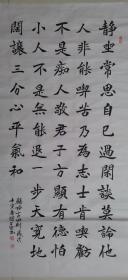 静坐常思自己過閑談莫論他
人非能受苦乃為志士肯喫虧
不是痴人敬君子方顯有德怕
小人不是無能退一步天寬地
闊讓三分心平氣和